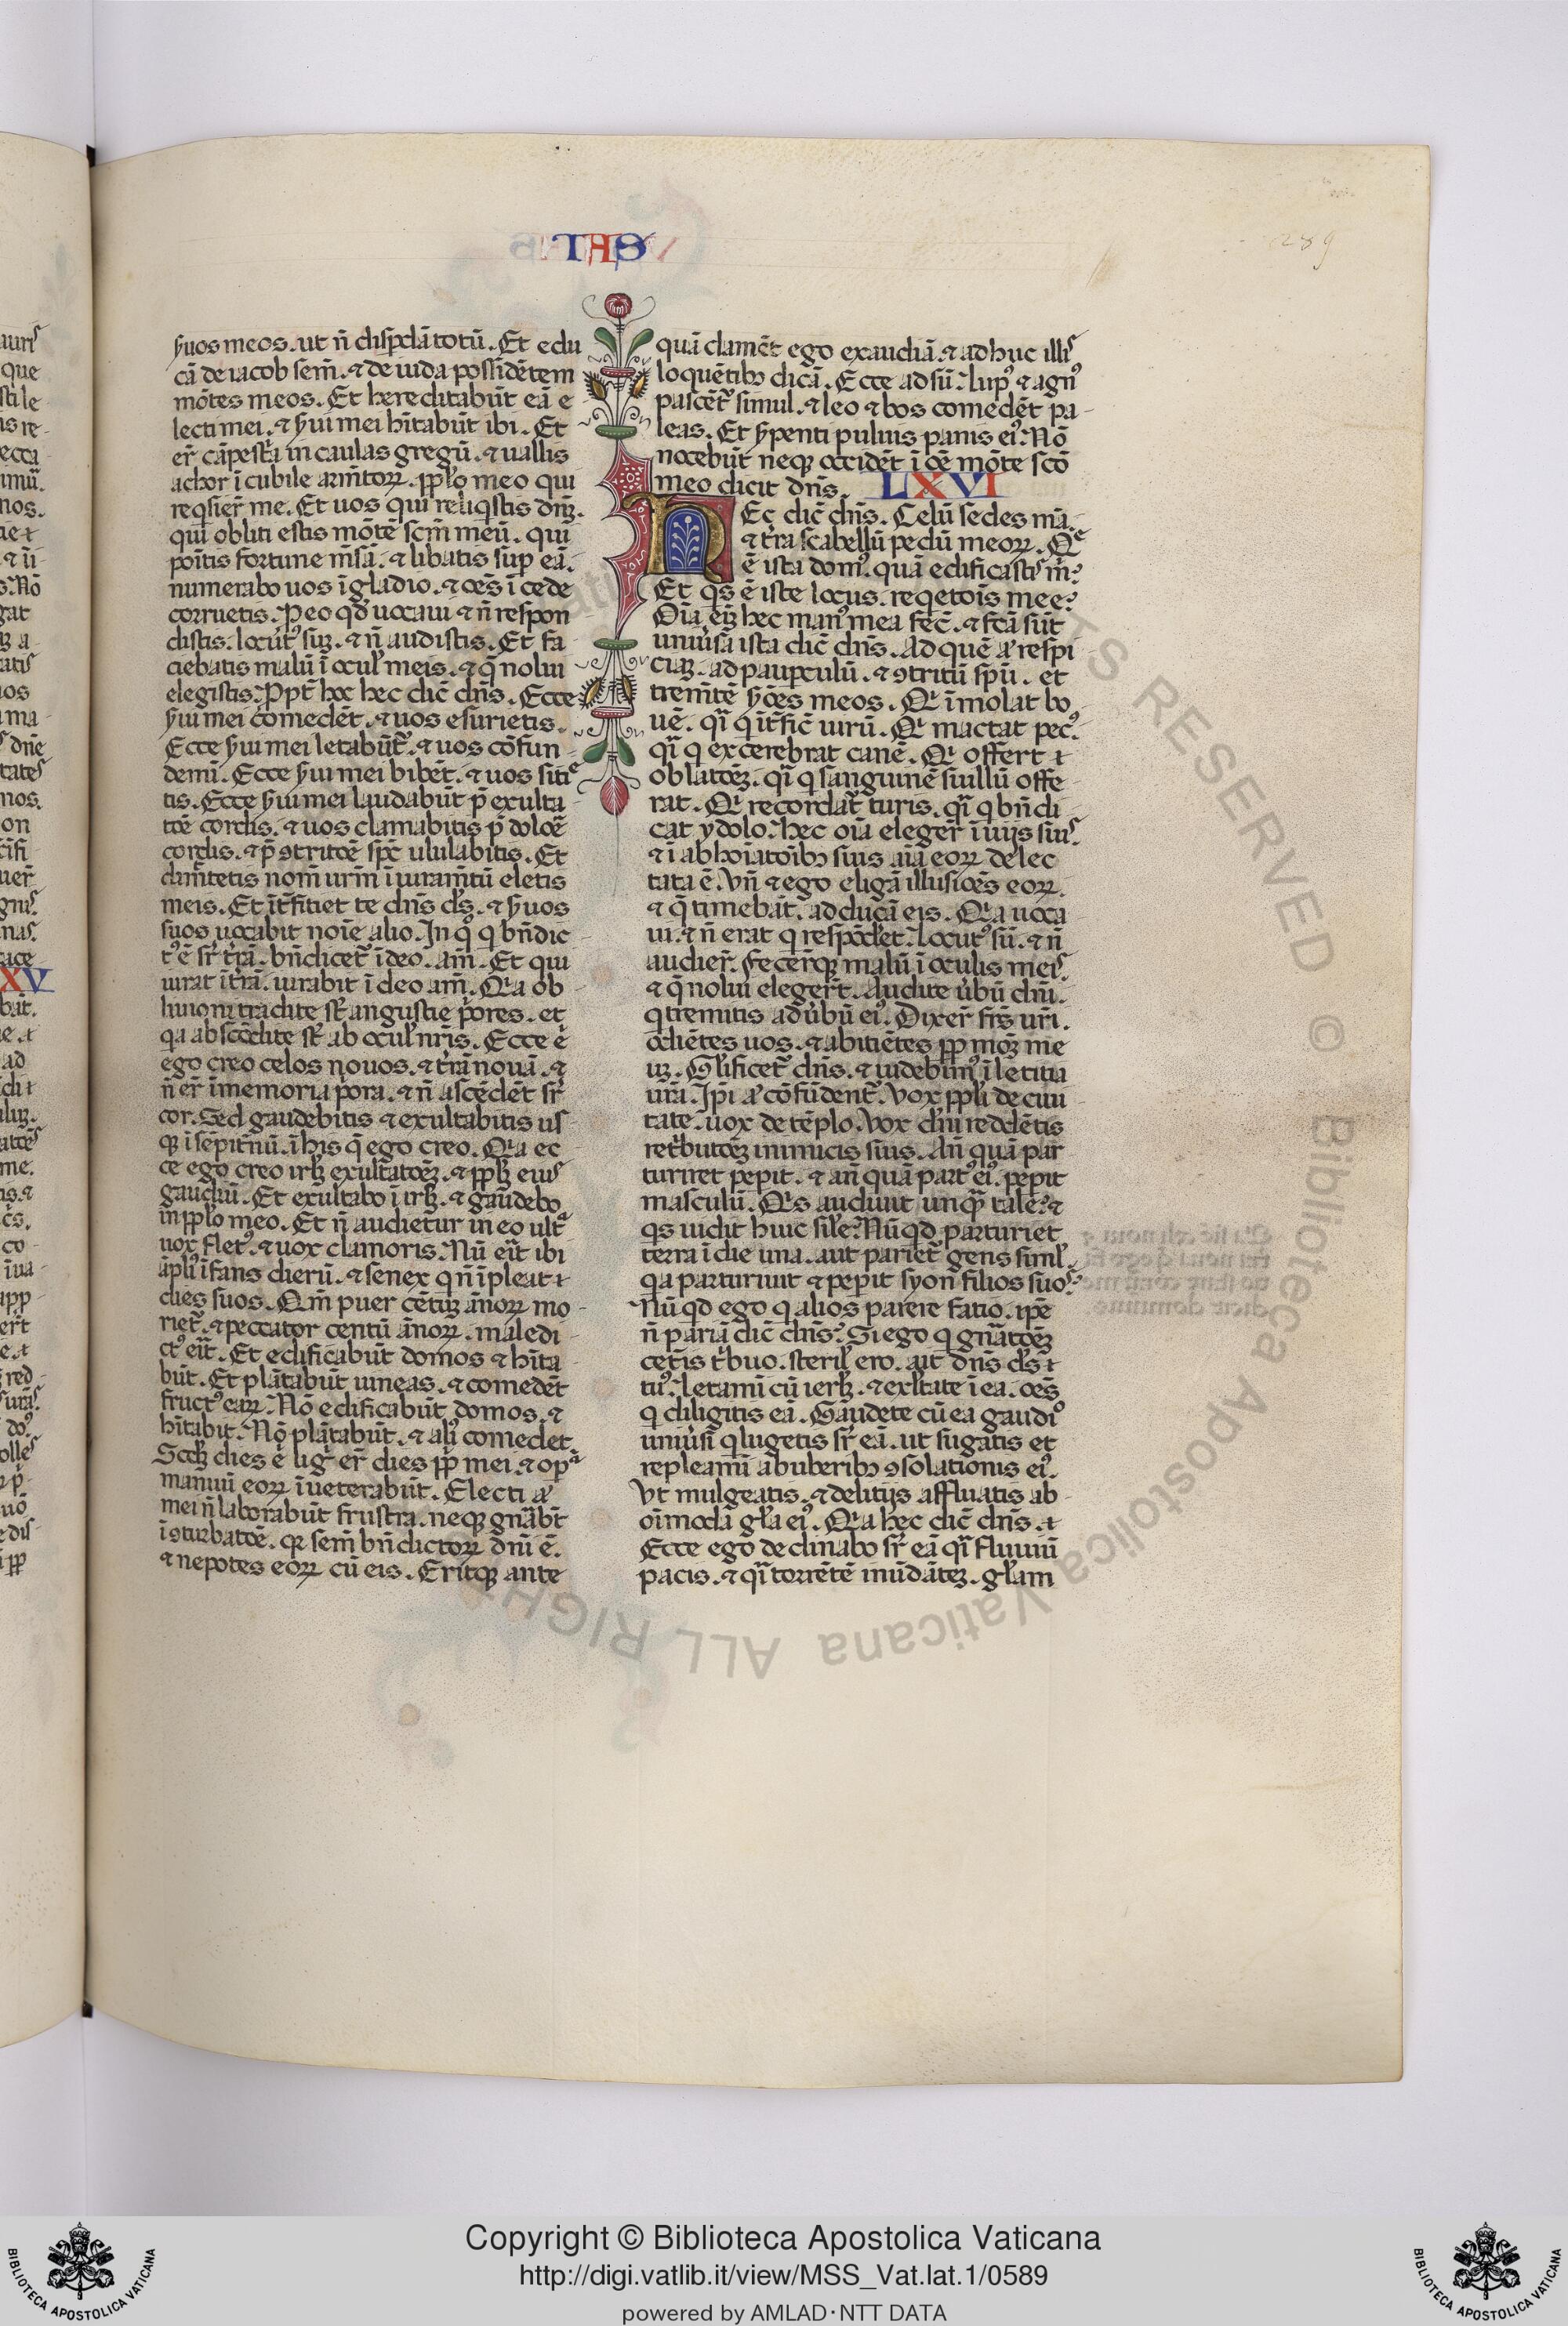 THS
289
ẜuos meos. ut n̄ disꝑdā totū. Et edu
cā de iacob sem̄. ⁊ de iuda possidētem
mōtes meos. Et hereditabūt eā e
lecti mei. ⁊ ẜui mei hītabūt ibi. Et
er̄ cāpestͣ in caulas gregū. ⁊ uallis
achor ī cubile armītoꝝ. pp̄lo meo qui
reqͥsier̄ me. Et uos qui reliqͥstis dn̄ꝫ.
qui obliti estis mōtē scm̄ meū. qui
poītis fortune m̄sā. ⁊ libatis suꝑ eā.
numerabo uos ī gladio. ⁊ oēs ī cede
corruetis. Peo qd̓ uocaui ⁊ n̄ respon
distis. locut᷒ suꝫ. ⁊ n̄ audistis. Et fa
ciebatis malū ī ocul̓ meis. ⁊ q̄ nolui
elegistis. Ppt̄ hoc hec dic̄ dn̄s. Ecce
ẜui mei comedēt. ⁊ uos esurietis.
Ecce ẜui mei letabūt᷑. ⁊ uos cōfun
demī. Ecce ẜui mei bibēt. ⁊ uos sitie
tis. Ecce ẜui mei laudabūt p̄ exulta
toē cordis. ⁊ uos clamabitis p̄ doloē
cordis. ⁊ p̄ ꝯtritoē spc̄ ululabitis. Et
dimītetis nom̄ urm̄ ī iuram̄tū eletis
meis. Et īt̄fitiet te dn̄s ds̄. ⁊ ẜuos
suos uocabit noīe alio. In qͦ q bn̄dic
t᷒ ē sr̄ tr̄ā. bn̄dicet᷑ ī deo. am̄. Et qui
iurat ī tr̄ā. iurabit ī deo am̄. Qꝛa ob
liuioni tradite st̄ angustie pͥores. et
qa abscōdite st̄ ab ocul̓ nr̄is. Ecce .n.
ego creo celos nouos. ⁊ tr̄ā nouā. ⁊
n̄ er̄ ī memoria pͥora. ⁊ n̄ ascēdēt sr̄
cor. Sed gaudebitis ⁊ exultabitis us
qꝫ ī sēpitͥnū. ī his q̄ ego creo. Qꝛa ec
ce ego creo irl̓ꝫ exultatoēꝫ. ⁊ pp̄lꝫ eius
gaudiū. Et exultabo ī irl̓ꝫ. ⁊ gaudebo
in pp̄lo meo. Et n̄ audietur in eo ultͣ
uox flet᷒. ⁊ uox clamoris. Nū eīt ibi
āpli᷒ īfans dierū. ⁊ senex q n̄ īpleat ⁊
dies suos. Qm̄ puer cētuꝫ ānoꝝ mo
riet᷑. ⁊ peccator centū ānoꝝ. maledi
ct᷒ eīt. Et edificabūt domos ⁊ hīta
būt. Et plātabūt uineas. ⁊ comedēt
fruct᷒ eaꝝ. Nō edificabūt domos. ⁊
hītabit. Nō plātabūt. ⁊ ali᷒ comedet
Scd̓ꝫ dies .n. ligͥ er̄ dies pp̄ mei. ⁊ opͣ
manuū eoꝝ īueterabūt. Electi aͣ
mei n̄ laborabūt frustra. neqꝫ gnͣbt̄
ī ꝯturbatoē. qꝛ sem̄ bn̄dictoꝝ dnī ē.
⁊ nepotes eoꝝ cū eis. Eritqꝫ ante
quā clamēt ego exaudiā. ⁊ adhuc illis
loquētibꝫ dicā. Ecce adsū. lup᷒ ⁊ agn᷒
pascēt᷑ simul. ⁊ leo ⁊ bos comedēt pa
leas. Et ẜpenti puluis panis ei᷒. Nō
nocebūt neqꝫ occidēt ī oē mōte scō
meo dicit dn̄s. LXVI
Hec dic̄ dn̄s. Celū sedes mā.
⁊ tr̄a scabellū pedū meoꝝ. Qͤ
ē ista dom᷒. quā edificastis m̄?
Et qͥs ē iste locus. reqͥetoīs mee?
Oīa eīꝫ hec man᷒ mea fec̄. ⁊ fcā sūt
uniuͥsa ista dic̄ dn̄s. Ad quē aͣ respi
ciaꝫ. ad pauꝑculū. ⁊ ꝯtritū spū. et
trem̄tē ẜōes meos. Qꝛ īmolat bo
uē. qͣi q īt̄fic̄ uirū. Qꝛ mactat pec᷒.
qͣi q excerebrat canē. Qꝛ offert ⁊
oblatoēꝫ. qͣi q sanguinē siullū offe
rat. Qꝛ recordat᷑ turis. qͣi q bn̄di
cat ydolo. hec oīa eleger̄ ī uiis suis.
⁊ ī abhoīatoībꝫ suis aīa eoꝝ delec
tata ē. Vn̄ ⁊ ego eligā illusioēs eoꝝ.
⁊ q̄ timebāt. adducā eis. Qꝛa uoca
ui. ⁊ n̄ erat q respōdet. Locut᷒ sū. ⁊ n̄
audier̄. fecer̄qꝫ malū ī oculis meis.
⁊ q̄ nolui eleger̄t. Audite uͥbū dnī.
q tremitis ad uͥbū ei᷒. Dixer̄ fr̄s urī.
odiētes uos. ⁊ abitiētes ꝓp̄ noꝫ me
uꝫ. Gl̓ificet᷑ dn̄s. ⁊ uidebim᷒ ī letitia
ur̄a. Ip̄i aͣ cōfūdent᷑. Vox pp̄li de ciui
tate. uox de tēplo. Vox dnī reddētis
retͥbutoēꝫ inimicis suis. An̄ quā par
turiret peꝑit. ⁊ an̄ quā part᷒ ei᷒. peꝑit
masculū. Qͥs audiuit unqͣ̄ tale? ⁊
qͥs uidit huic sil̓e? Nūqͥd parturiet
terra ī die una. aut pariet᷑ gens siml̓.
qa parturiuit ⁊ peꝑit syon filios suos?
Nūqͥd ego q alios parere fatio. ip̄e
n̄ pariā dic̄ dn̄s? Si ego q gnͣatoēꝫ
cet̄is tͥbuo. steril̓ ero. ait dn̄s ds̄ ⁊
tu᷒. letamī cū ierl̓ꝫ. ⁊ exl̓tate ī ea. oēs
q diligitis eā. Gaudete cū ea gaudio
uniuͥsi q lugetis sr̄ eā. ut sugatis et
repleamī ab uberibꝫ ꝯsolationis ei᷒.
Vt mulgeatis. ⁊ delitijs affluatis ab
oīmoda gl̓a ei᷒. Qꝛa hec dic̄ dn̄s. ⁊
Ecce ego declinabo sr̄ eā qͣi fluuiū
pacis. ⁊ qͣi torrētē inūdātēꝫ. gl̓am
Copyright © Biblioteca Apostolica Vaticana
http://digi.vatlib.it/view/MSS_Vat.lat.1/0589
powered by AMLAD·NTT DATA
BIBLIOTECA APOSTOLICA VATICANA
BIBLIOTECA APOSTOLICA VATICANA